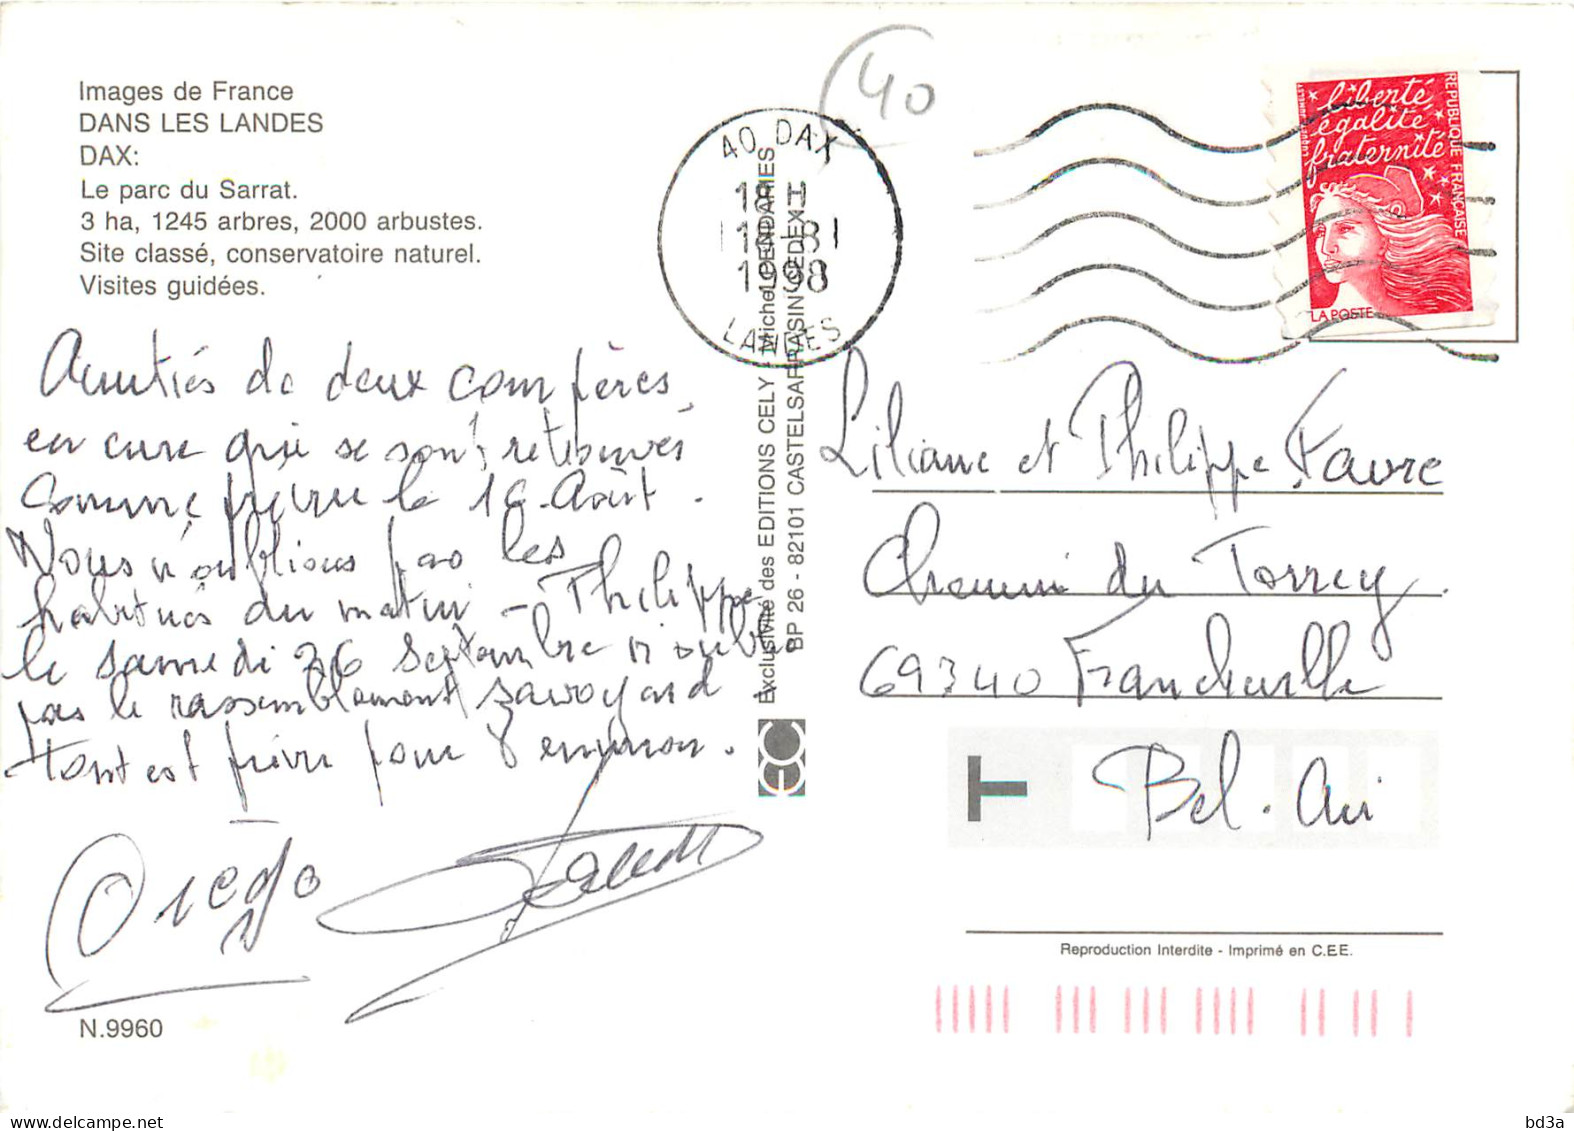 Images de France
DANS LES LANDES
DAX:
Le parc du Sarrat.
3 ha, 1245 arbres, 2000 arbustes.
Site classé, conservatoire naturel.
Visites guidées.
Amitiés de deux compères
en cure qui se sont retrouvés
comme prévu le 16 Août.
Nous n'oublions pas les
habitués du matin - Philippe
le samedi 26 Septembre n'oublie
pas le rassemblement savoyard.
Tout est prévu pour 8 environ.
Diego
N.9960
40
40 DAX
18 H
1998
LANDES
Exclusivité des EDITIONS CELY - Michel DENDARIES
BP 26 - 82101 CASTELSARRASIN CEDEX
EC
liberté
égalité
fraternité
REPUBLIQUE FRANÇAISE
LA POSTE
Liliane et Philippe Favre
Chemin du Torrey
69340 Francheville
Bel-Air
T
Reproduction Interdite - Imprimé en C.E.E.
bd3a